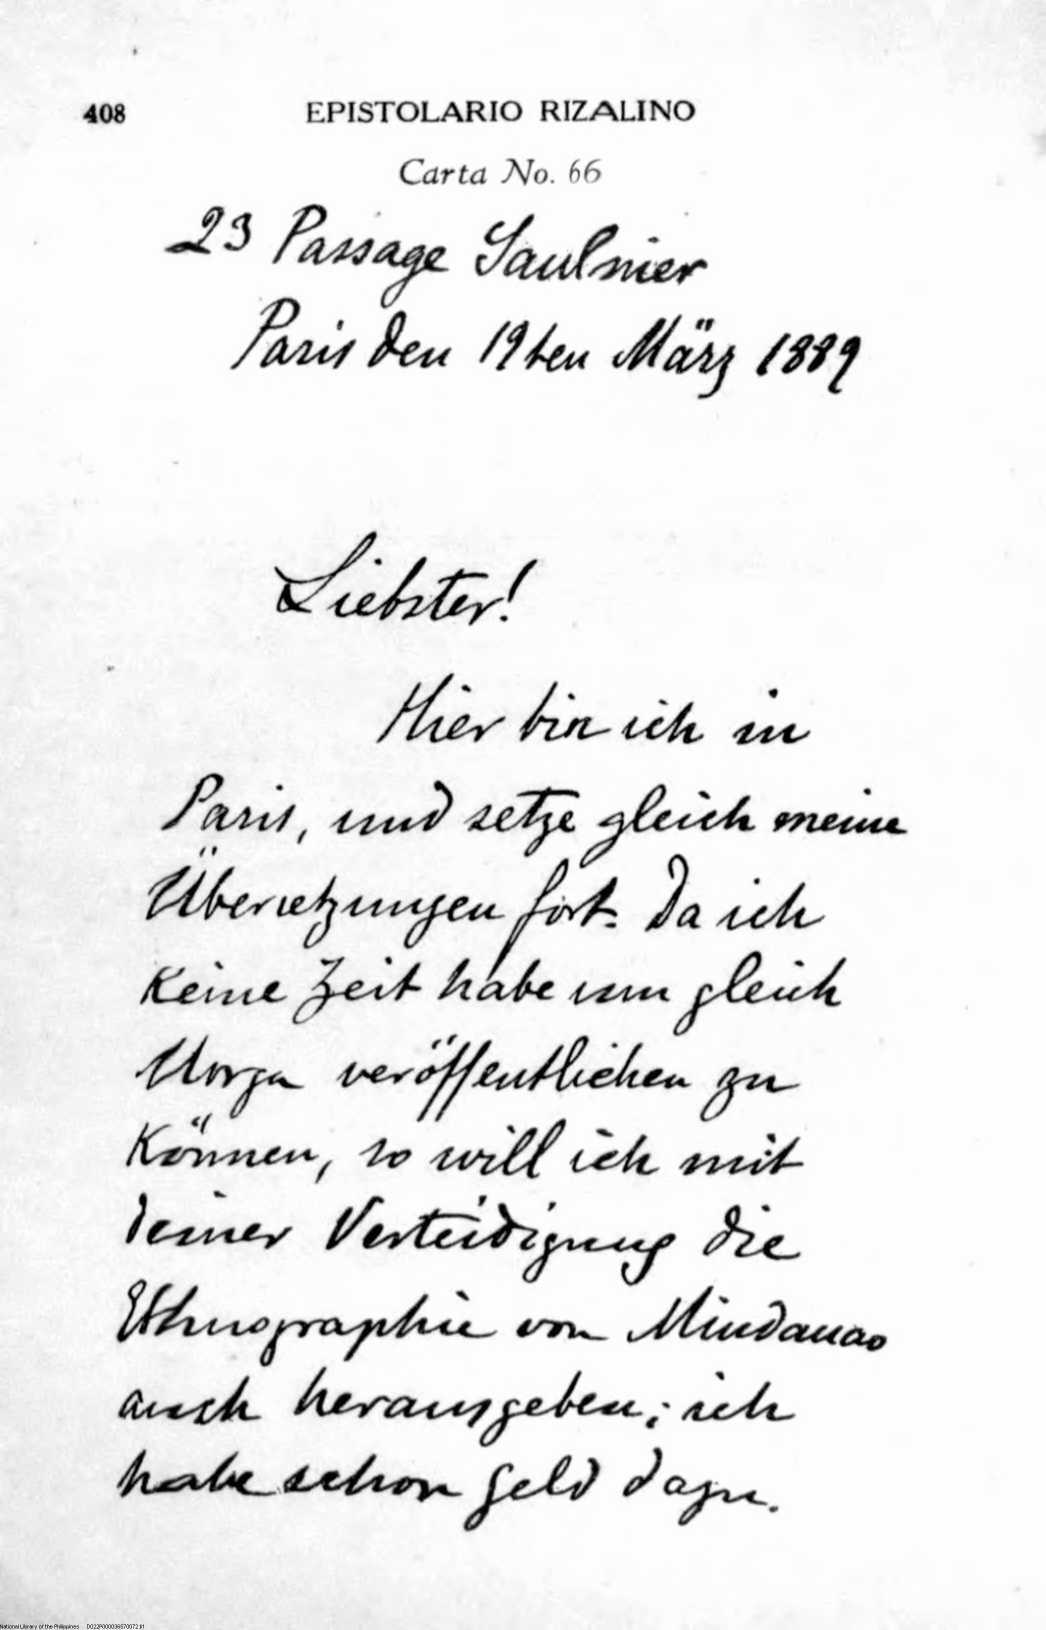 408 EPISTOLARIO RIZALINO
Carta No. 66
23 Passage Saulnier
Paris den 19ten März 1889
Liebster!
Hier bin ich in
Paris, und setze gleich meine
Übersetzungen fort. Da ich
keine Zeit habe um gleich
Morga veröffentlichen zu
können, so will ich mit
deiner Verteidigung die
Ethnographie von Mindanao
auch herausgeben; ich
habe schon Geld dazu.
National Library of the Philippines